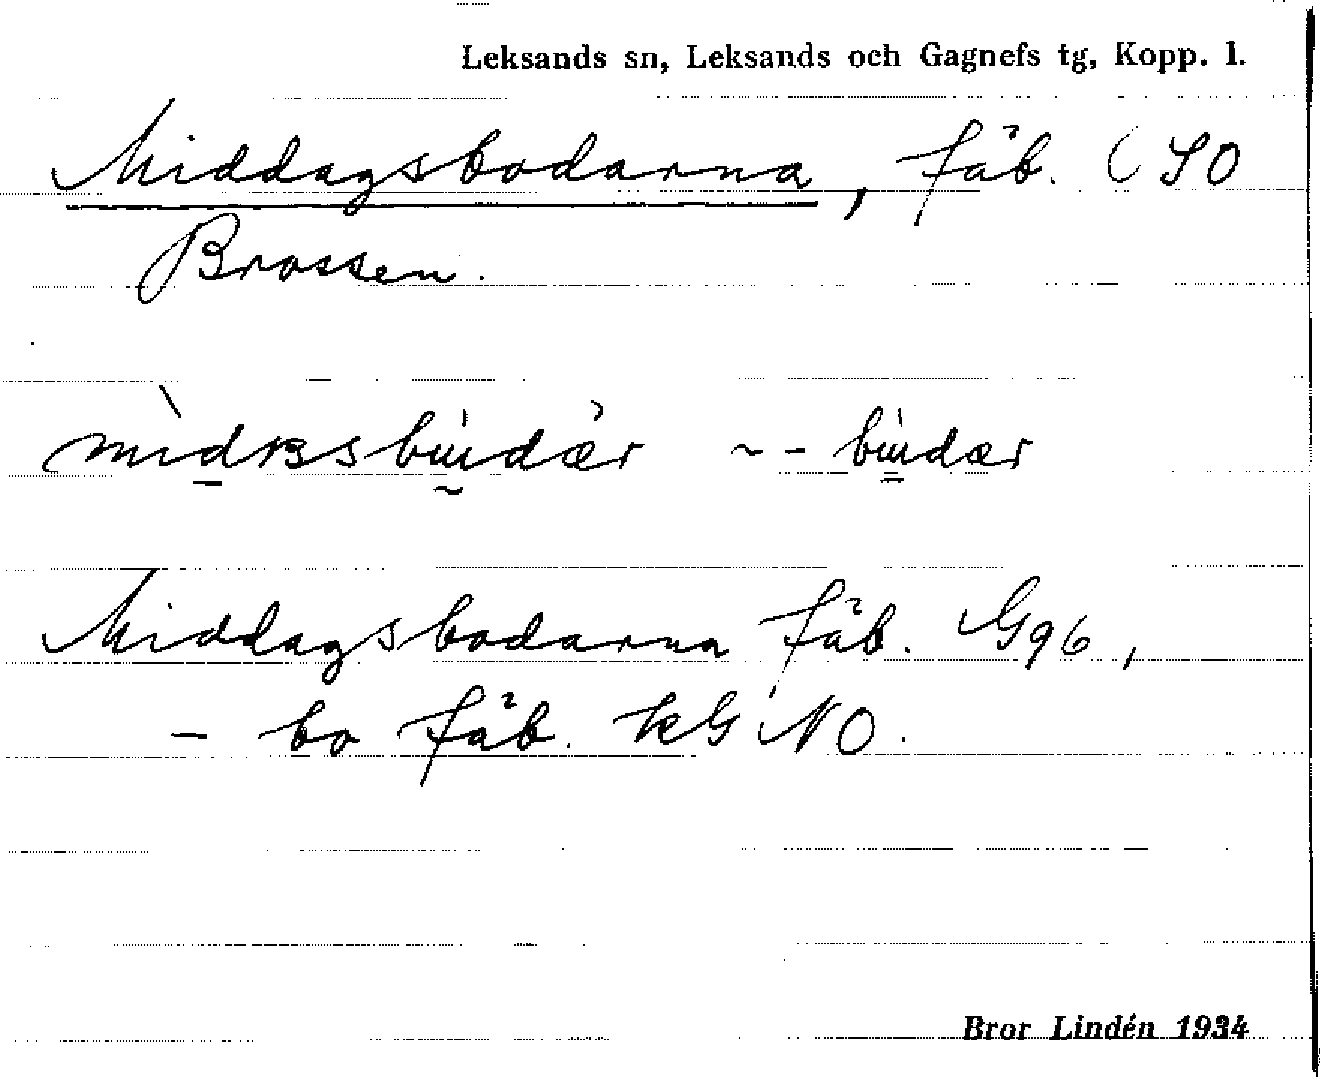 Leksands sn, Leksands och Gagnefs tg, Kopp. l.
Middagsbodarna, fäb. (SO
Brossen.
Middagsbodarna fäb. G96,
- bo fäb. kG NO.
Bror Lindén 1934